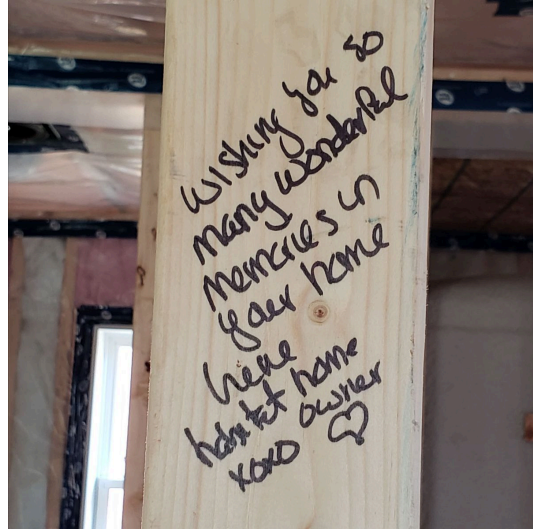 Wishing you so
many wonderful
memories in
your home
here
habitat home
xoxo owner